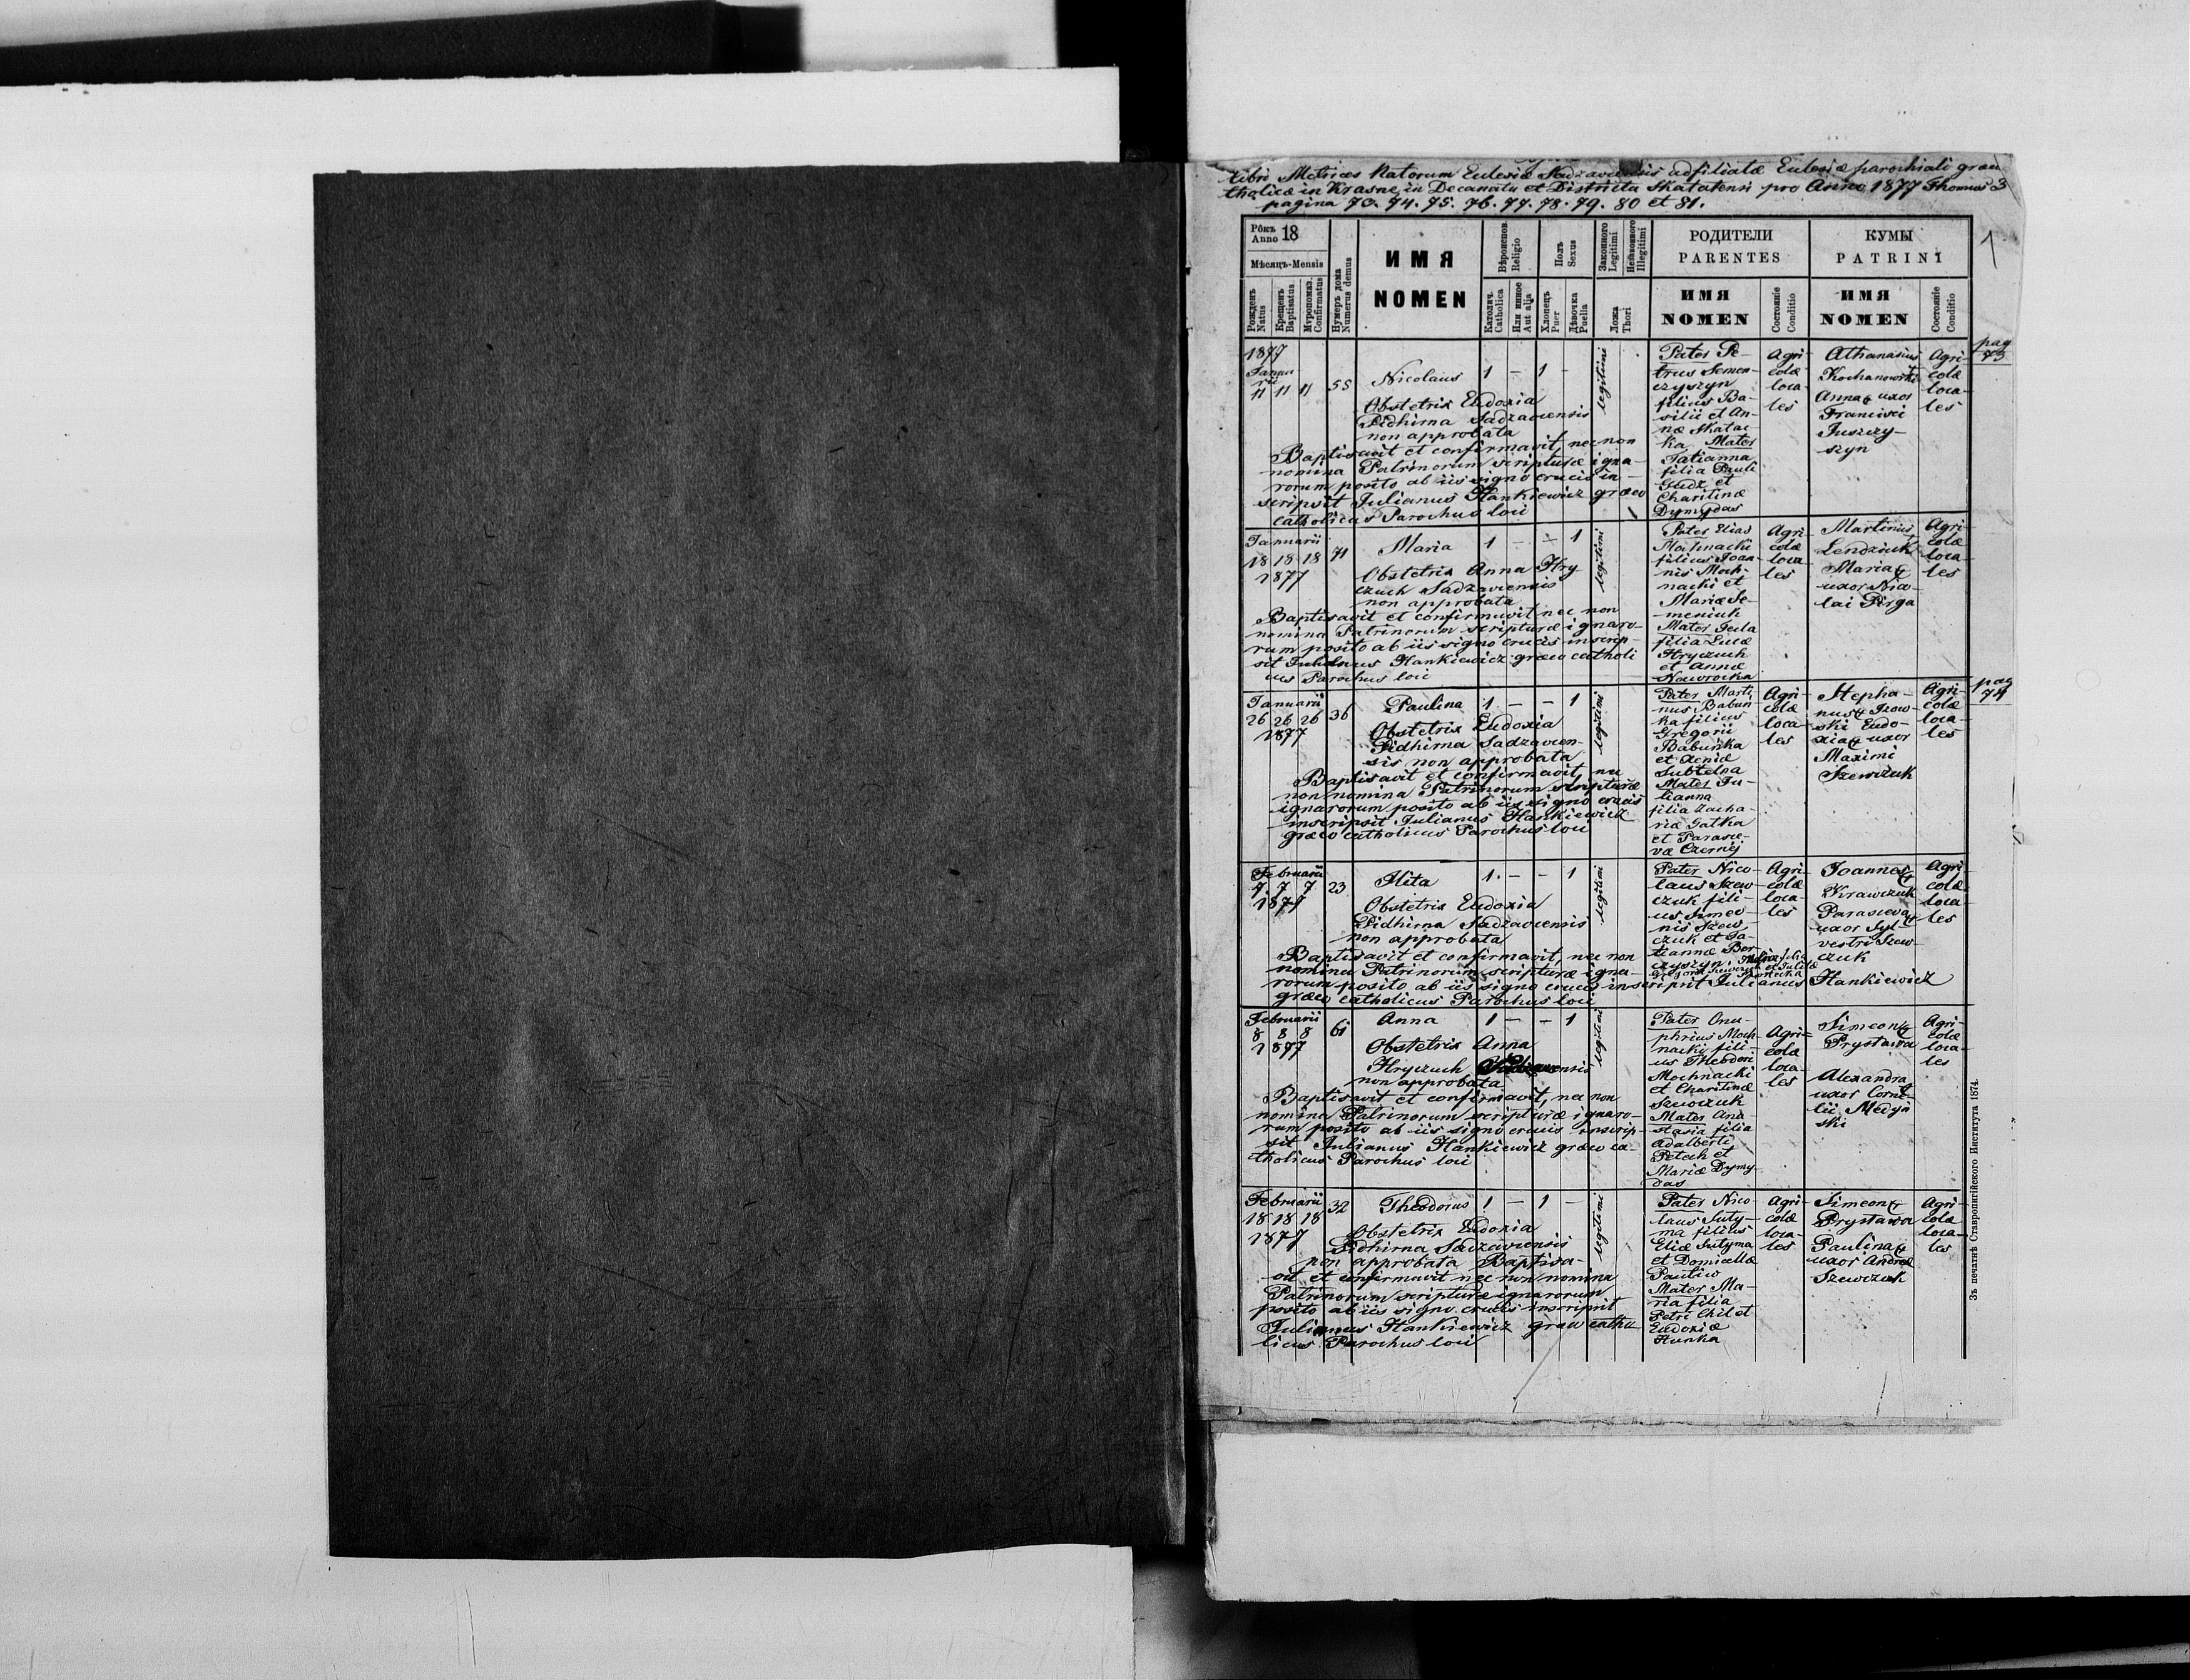 Libri Metrices Natorum Eclesiæ Sadzaviensis adfiliatæ Eclesiæ parochiali græco
tholicæ in Krasne in Decanatu et Districtu Skalatensi pro Anno 1877 Thomus 3
pagina 73. 74. 75. 76. 77. 78. 79. 80 et 81.
1
Рôкъ Anno 18
Мѣсяцъ-Mensis
Рожденъ Natus
Крещенъ Baptisatus
Мѵропомаз. Confirmatus
Нумеръ дома Numerus domus
ИМЯ
NOMEN
Вѣроисповѣд. Religio
Католич. Catholica
Или инное Aut alia
Полъ Sexus
Хлопецъ Puer
Дѣвочка Puella
Законного Legitimi
Незаконного Illegitimi
Ложа Thori
РОДИТЕЛИ
PARENTES
ИМЯ
NOMEN
Состояніе Conditio
КУМЫ
PATRINI
ИМЯ
NOMEN
Состояніе Conditio
pag
73
1877
Januarii
11 11 11 55 Nicolaus 1 – 1 – legitimi
Obstetrix Eudoxia
Pidhirna Sadzaviensis
non approbata
Baptisavit et confirmavit nec non
nomina Patrinorum scripturæ igna-
rorum posito ab iis signo crucis in-
scripsit Julianus Hankiewicz græco
catholicus Parochus loci
Pater Pe-
trus Semen-
czyszyn
filius Ba-
silii et An-
næ Skalac-
ka Mater
Tatianna
filia Pauli
Gudz et
Charitinæ
Dymydas
Agri-
colæ
loca-
les
Athanasius
Kochanowski
Anna uxor
Francisci
Juszczy-
szyn
Agri-
colæ
loca-
les
Januarii
18 18 18 71 Maria 1 – – 1 legitimi
1877
Obstetrix Anna Hry
czuch Sadzaviensis
non approbata
Baptisavit et confirmavit nec non
nomina Patrinorum scripturæ ignaro-
rum posito ab iis signo crucis inscrip-
sit Julianus Hankiewicz græco catholi
cus Parochus loci
Pater Elias
Mochnacki
filius Joan-
nis Moch-
nacki et
Mariæ Se-
meniuk
Mater Tecla
filia Lucæ
Hryczuch
et Annæ
Nawrocka
Agri-
colæ
loca-
les
Martinus
Lendziuk
Maria
uxor Nico-
lai Pirga
Agri-
colæ
loca-
les
pag
74
Januarii
26 26 26 36 Paulina 1 – – 1 legitimi
1877
Obstetrix Eudoxia
Pidhirna Sadzavien-
sis non approbata
Baptisavit et confirmavit, nec
non nomina Patrinorum scripturæ
ignarorum posito ab iis signo crucis
inscripsit Julianus Hankiewicz
græco catholicus Parochus loci
Pater Marti-
nus Babuń
ka filius
Gregorii
Babuńka
et Xeniæ
Subtelna
Mater Ju-
lianna
filia Zacha-
riæ Gatka
et Parasce-
væ Czornij
Agri-
colæ
loca-
les
Stepha-
nus Izow-
ski Eudo-
xia uxor
Maximi
Szewczuk
Agri-
colæ
loca-
les
Februarii
7. 7 7 23 Hlita 1. – – 1 legitimi
1877
Obstetrix Eudoxia
Pidhirna Sadzaviensis
non approbata
Baptisavit et confirmavit, nec non
nomina Patrinorum scripturæ igna-
rorum posito ab iis signo crucis inscripsit Julianus Hankiewicz
græco catholicus Parochus loci
Pater Nico-
laus Szew-
czuk fili-
us Simeo-
nis Szew-
czuk et Ta-
tiannæ Bor-
czyszyn
Agri-
colæ
loca-
les
Joannes
Krawczuk
Parasceva
uxor Syl-
vestri Szew-
czuk
Agri-
colæ
loca-
les
Februarii
8 8 8 61 Anna 1 – – 1 legitimi
1877
Obstetrix Anna
Hryczuch Sadzaviensis
non approbata
Baptisavit et confirmavit, nec non
nomina Patrinorum scripturæ ignaro-
rum posito ab iis signo crucis inscrip-
sit Julianus Hankiewicz græco ca-
tholicus Parochus loci
Pater Onu-
phrius Moch-
nacki fili-
us Theodori
Mochnacki
et Charitinæ
Szewczuk
Mater Ana-
stasia filia
Adalberti
Petech et
Mariæ Dymy-
das
Agri-
colæ
loca-
les
Simeon
Prystawa
Alexandra
uxor Corne-
lii Medyń
ski
Agri-
colæ
loca-
les
Februarii
18 18 18 32 Theodorus 1 – 1 – legitimi
1877
Obstetrix Eudoxia
Pidhirna Sadzaviensis
non approbata Baptisa-
vit et confirmavit nec non nomina
Patrinorum scripturæ ignarorum
posito ab iis signo crucis inscripsit
Julianus Hankiewicz græco catho
licus Parochus loci
Pater Nico-
laus Suty-
ma filius
Eliæ Sutyma
et Domicellæ
Pauliw
Mater Ma-
ria filia
Petri Chil et
Eudoxiæ
Hunka
Agri-
colæ
loca-
les
Simeon
Prystawa
Paulina
uxor Andreæ
Szewczuk
Agri-
colæ
loca-
les
Зъ печатнѣ Ставропигійского Института 1874.